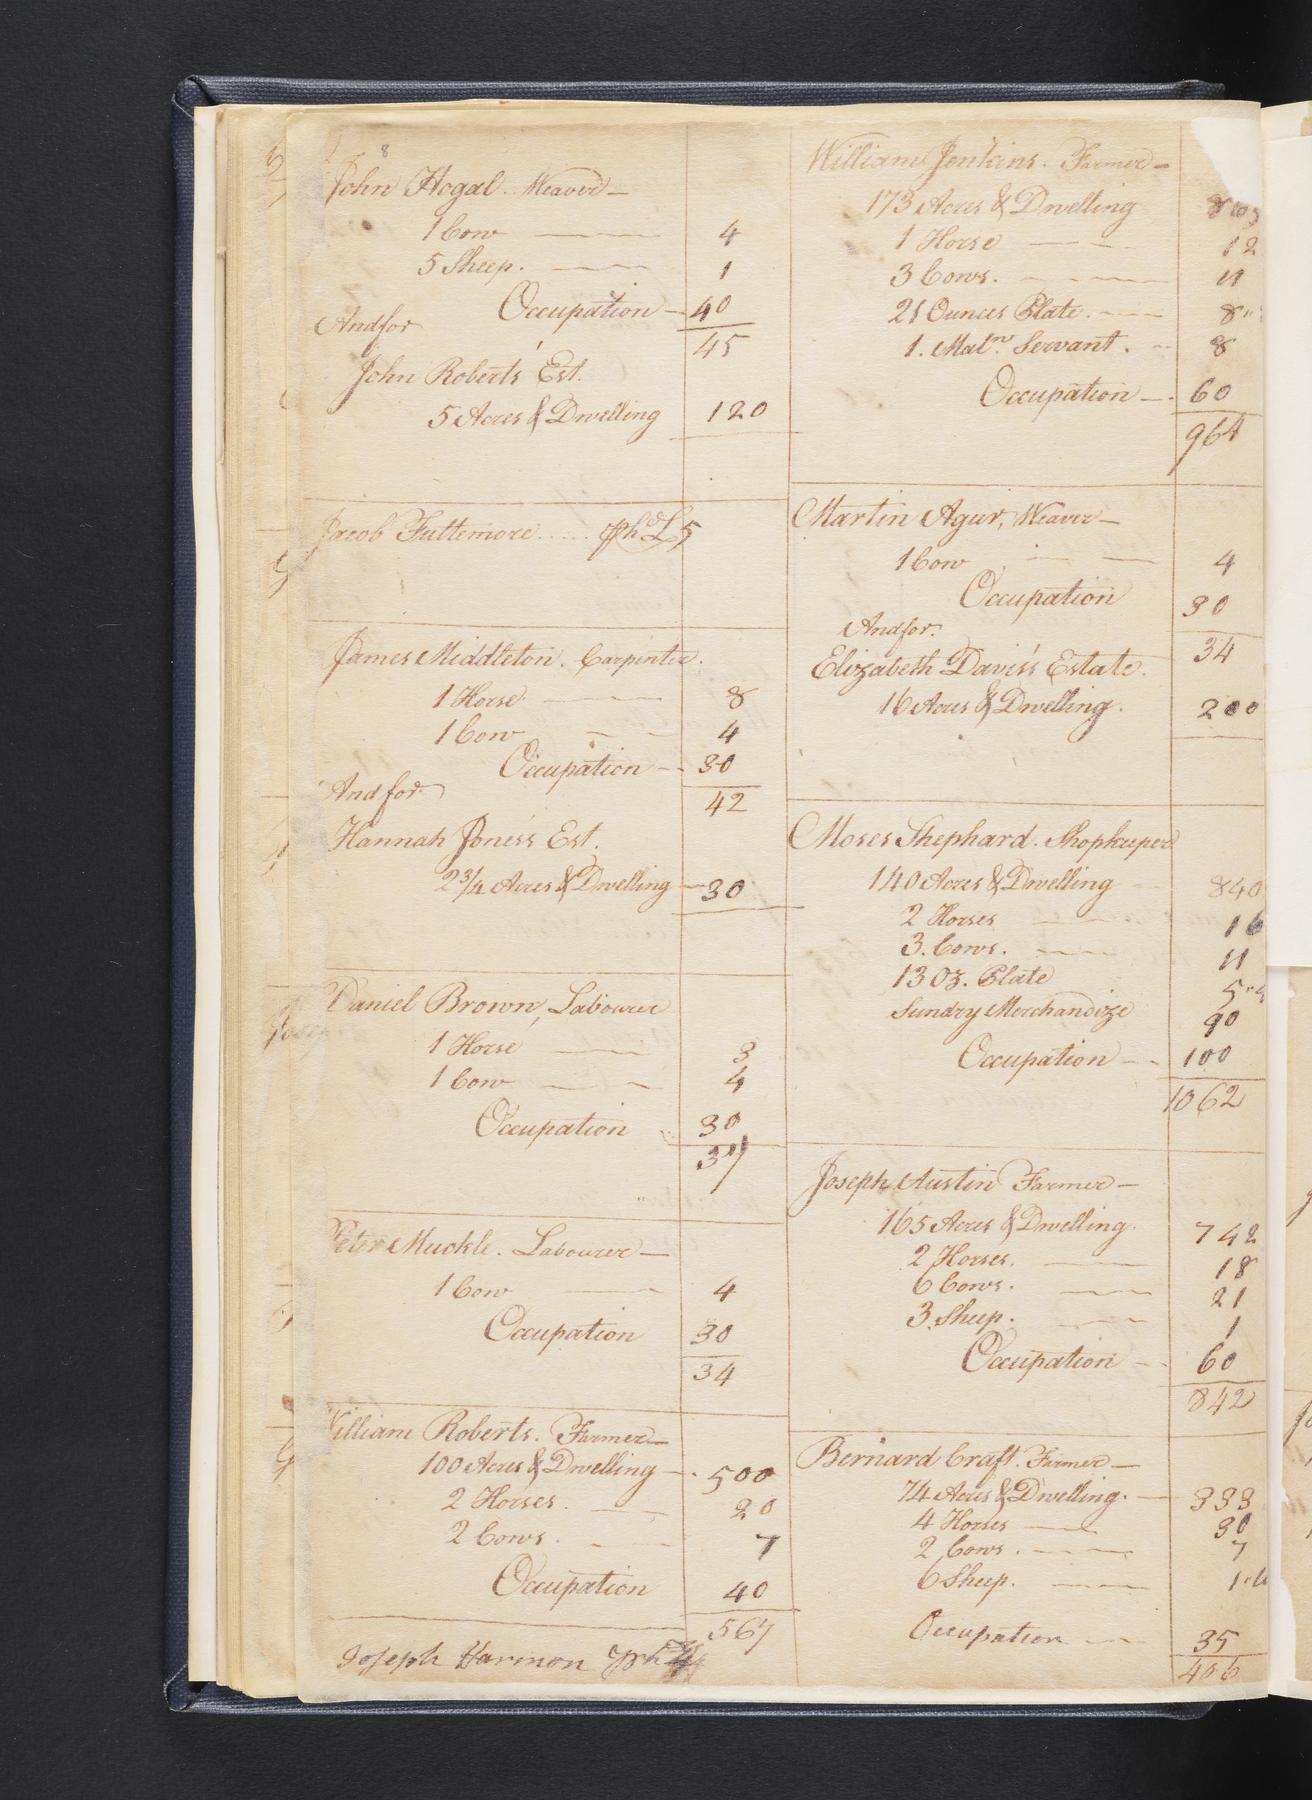 8
John Hogal. Weaver —
1 Cow 4
5 Sheep. 1
Occupation — 40
And for 45
John Roberts Est.
5 Acres & Dwelling 120
Jacob Futtemore ..... Ph^d £ 5
James Middleton. Carpenter.
1 Horse 8
1 Cow 4
Occupation — 30
And for 42
Hannah Jones's Est.
2 3/4 Acres & Dwelling — 30
Daniel Brown, Labourer
1 Horse 3
1 Cow 4
Occupation 30
37
Peter Muckle. Labourer —
1 Cow 4
Occupation 30
34
William Roberts. Farmer —
100 Acres & Dwelling — 500
2 Horses. 20
2 Cows. 7
Occupation 40
567
Joseph Harmon
William Jenkins. Farmer —
173 Acres & Dwelling
1 Horse 12
3 Cows. 11
21 Ounces Plate. 8
1. Mal^n. Servant. 8
Occupation — 60
964
Martin Agur, Weaver —
1 Cow 4
Occupation 30
And for. 34
Elizabeth Davis's Estate.
16 Acres & Dwelling. 200
Moses Shephard. Shopkeeper
140 Acres & Dwelling 840
2 Horses 16
3. Cows. 11
13 Oz. Plate 5
Sundry Merchandize 90
Occupation — 100
1062
Joseph Austin Farmer —
165 Acres & Dwelling. 742
2 Horses. 18
6 Cows. 21
3. Sheep. 1
Occupation — 60
842
Bernard Craft. Farmer —
74 Acres & Dwelling. — 333
4 Horses 30
2 Cows. 7
6 Sheep. 1
Occupation 35
406